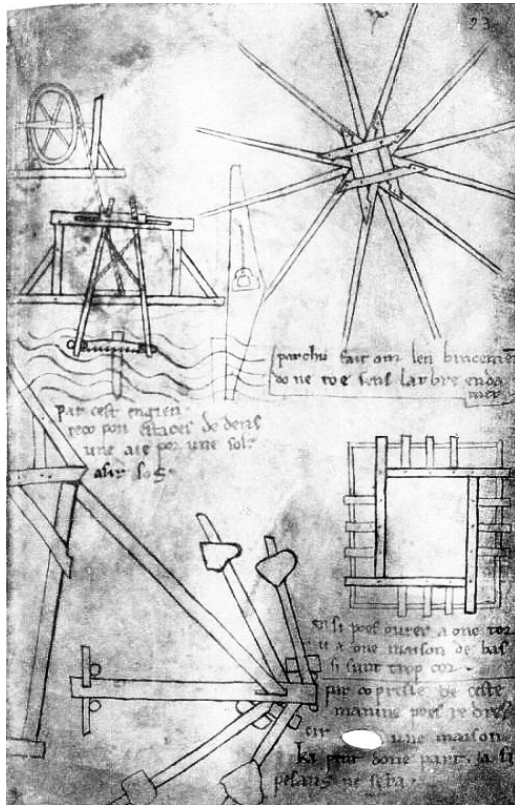 23
par chu fait om len bracemen
do ne roe sens larbre enda
mer
par cest engien
reco pon estaces de dens
une aie por une sole
asir sos
ensi poes ovrer a one tor
u a one maison de bas
si sunt trop cor
par co preste de ceste
manine poes re dres
cir une maison
ki pent done part. ja si
pesans ne seba